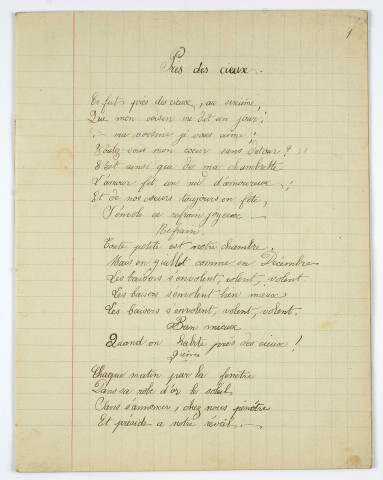 1
Près des cieux.
Ce fut près des cieux, au sixième,
Que mon voisin me dit un jour!
ma voisine je vous aime!
Voulez vous mon cœur sans détour? !!
C'est ainsi que de ma chambrette
L'amour fit un nid d'amoureux, !!
Et de nos cœurs toujours en fête,
S'envole ce refrain joyeux
Refrain.
Toute petite est notre chambre.
Mais en juillet comme en Décembre
Les baisers s'envolent, volent, volent.
Les baisers s'envolent bien mieux
Les baisers s'envolent, volent, volent.
Bien mieux
Quand on habite près des cieux!
2ième
Chaque matin par la fenêtre
Dans sa robe d'or le soleil
Sans s'annoncer, chez nous pénètre
Et préside a notre réveil.